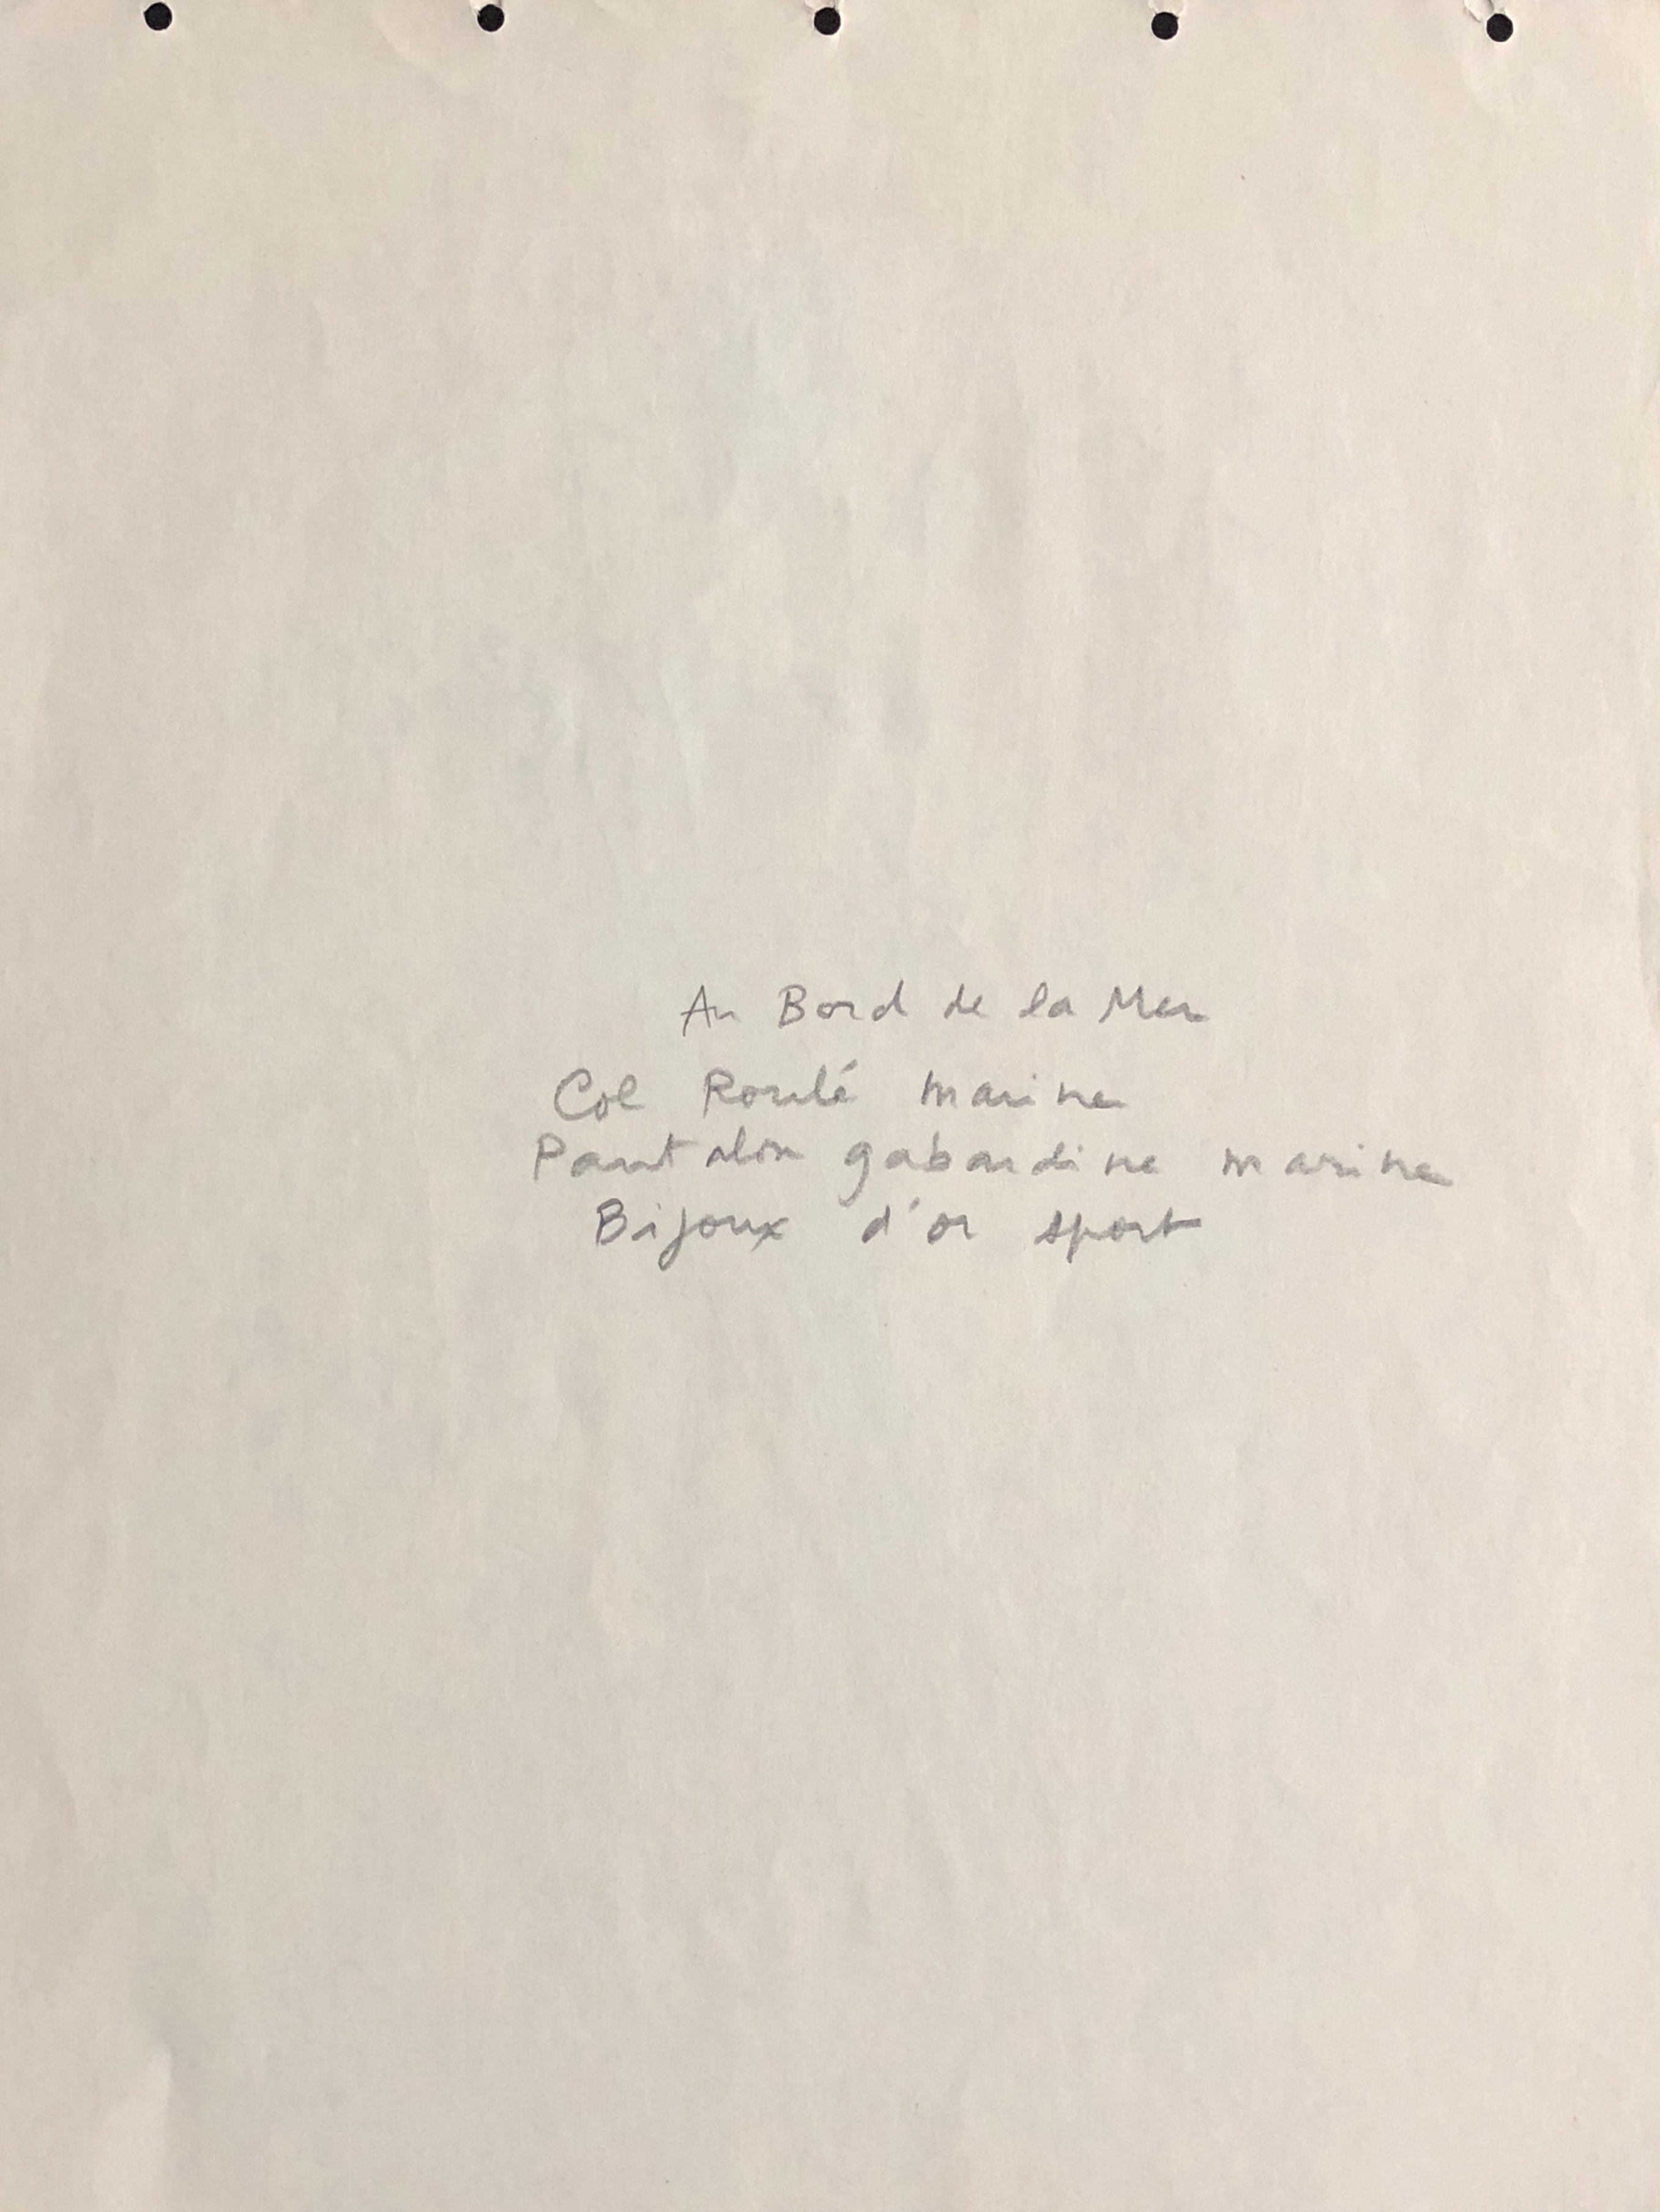 Au Bord de la Mer
Col Roulé marine
Pantalon gabardine marine
Bijoux d'or sport